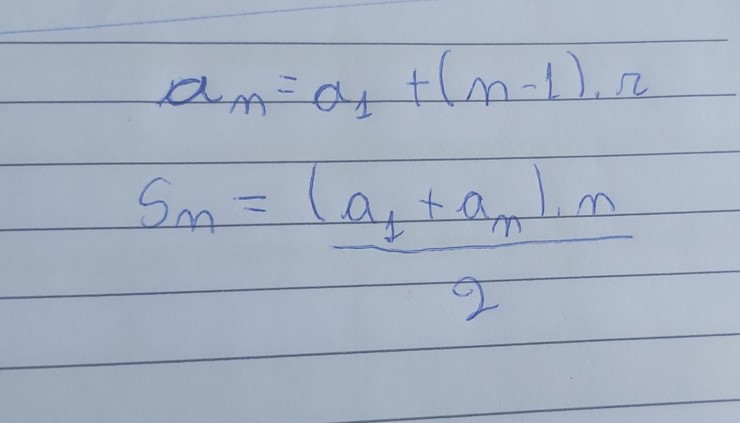 aₙ = a₁ + (n-1).r
Sₙ = (a₁ + aₙ).n
2